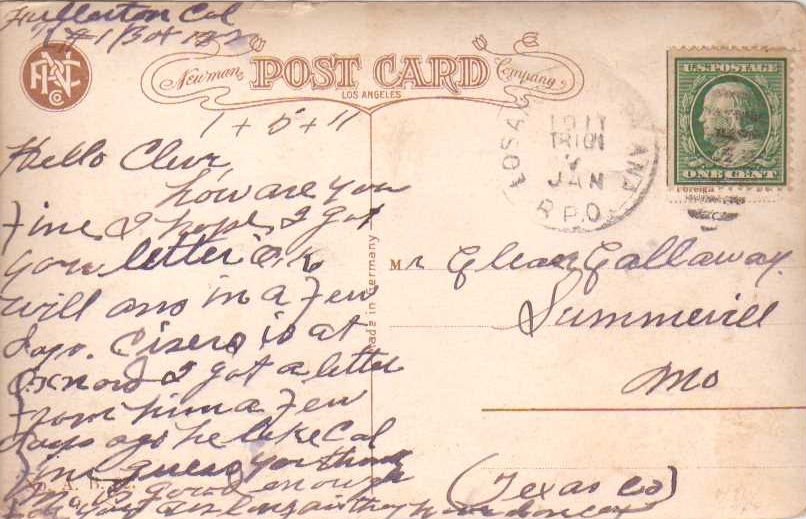 Fullerton Cal
#1 Box
Newman POST CARD Company
LOS ANGELES
U.S. POSTAGE
ONE CENT
Foreign
LOS A ANA
1911
TR 101
JAN
R.P.O.
1+5+11
Hello Cleve,
how are you
Fine I hope, I got
your letter O.K.
will ans in a few
days. Cisero is at
now I got a letter
from him a few
days ago he like Cal
fine guess you think
Mo is good enough
for you
Made in Germany
Mr Galloway.
Summerville
Mo
(Texas Co)